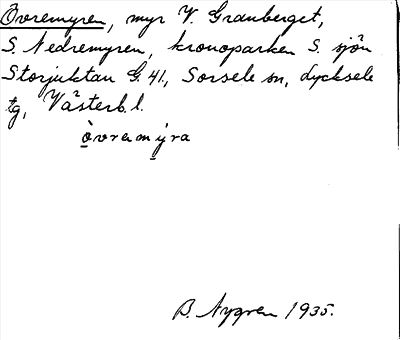 Övremyren, myr V. Granberget,
S. Nedremyren, kronoparken S. sjön
Storjuktan G. 41, Sorsele sn, Lycksele
tg, Västerb. l.
òvremýra
B. Nygren 1935.